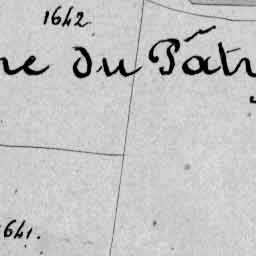 1642
ne du Pâtr
641.